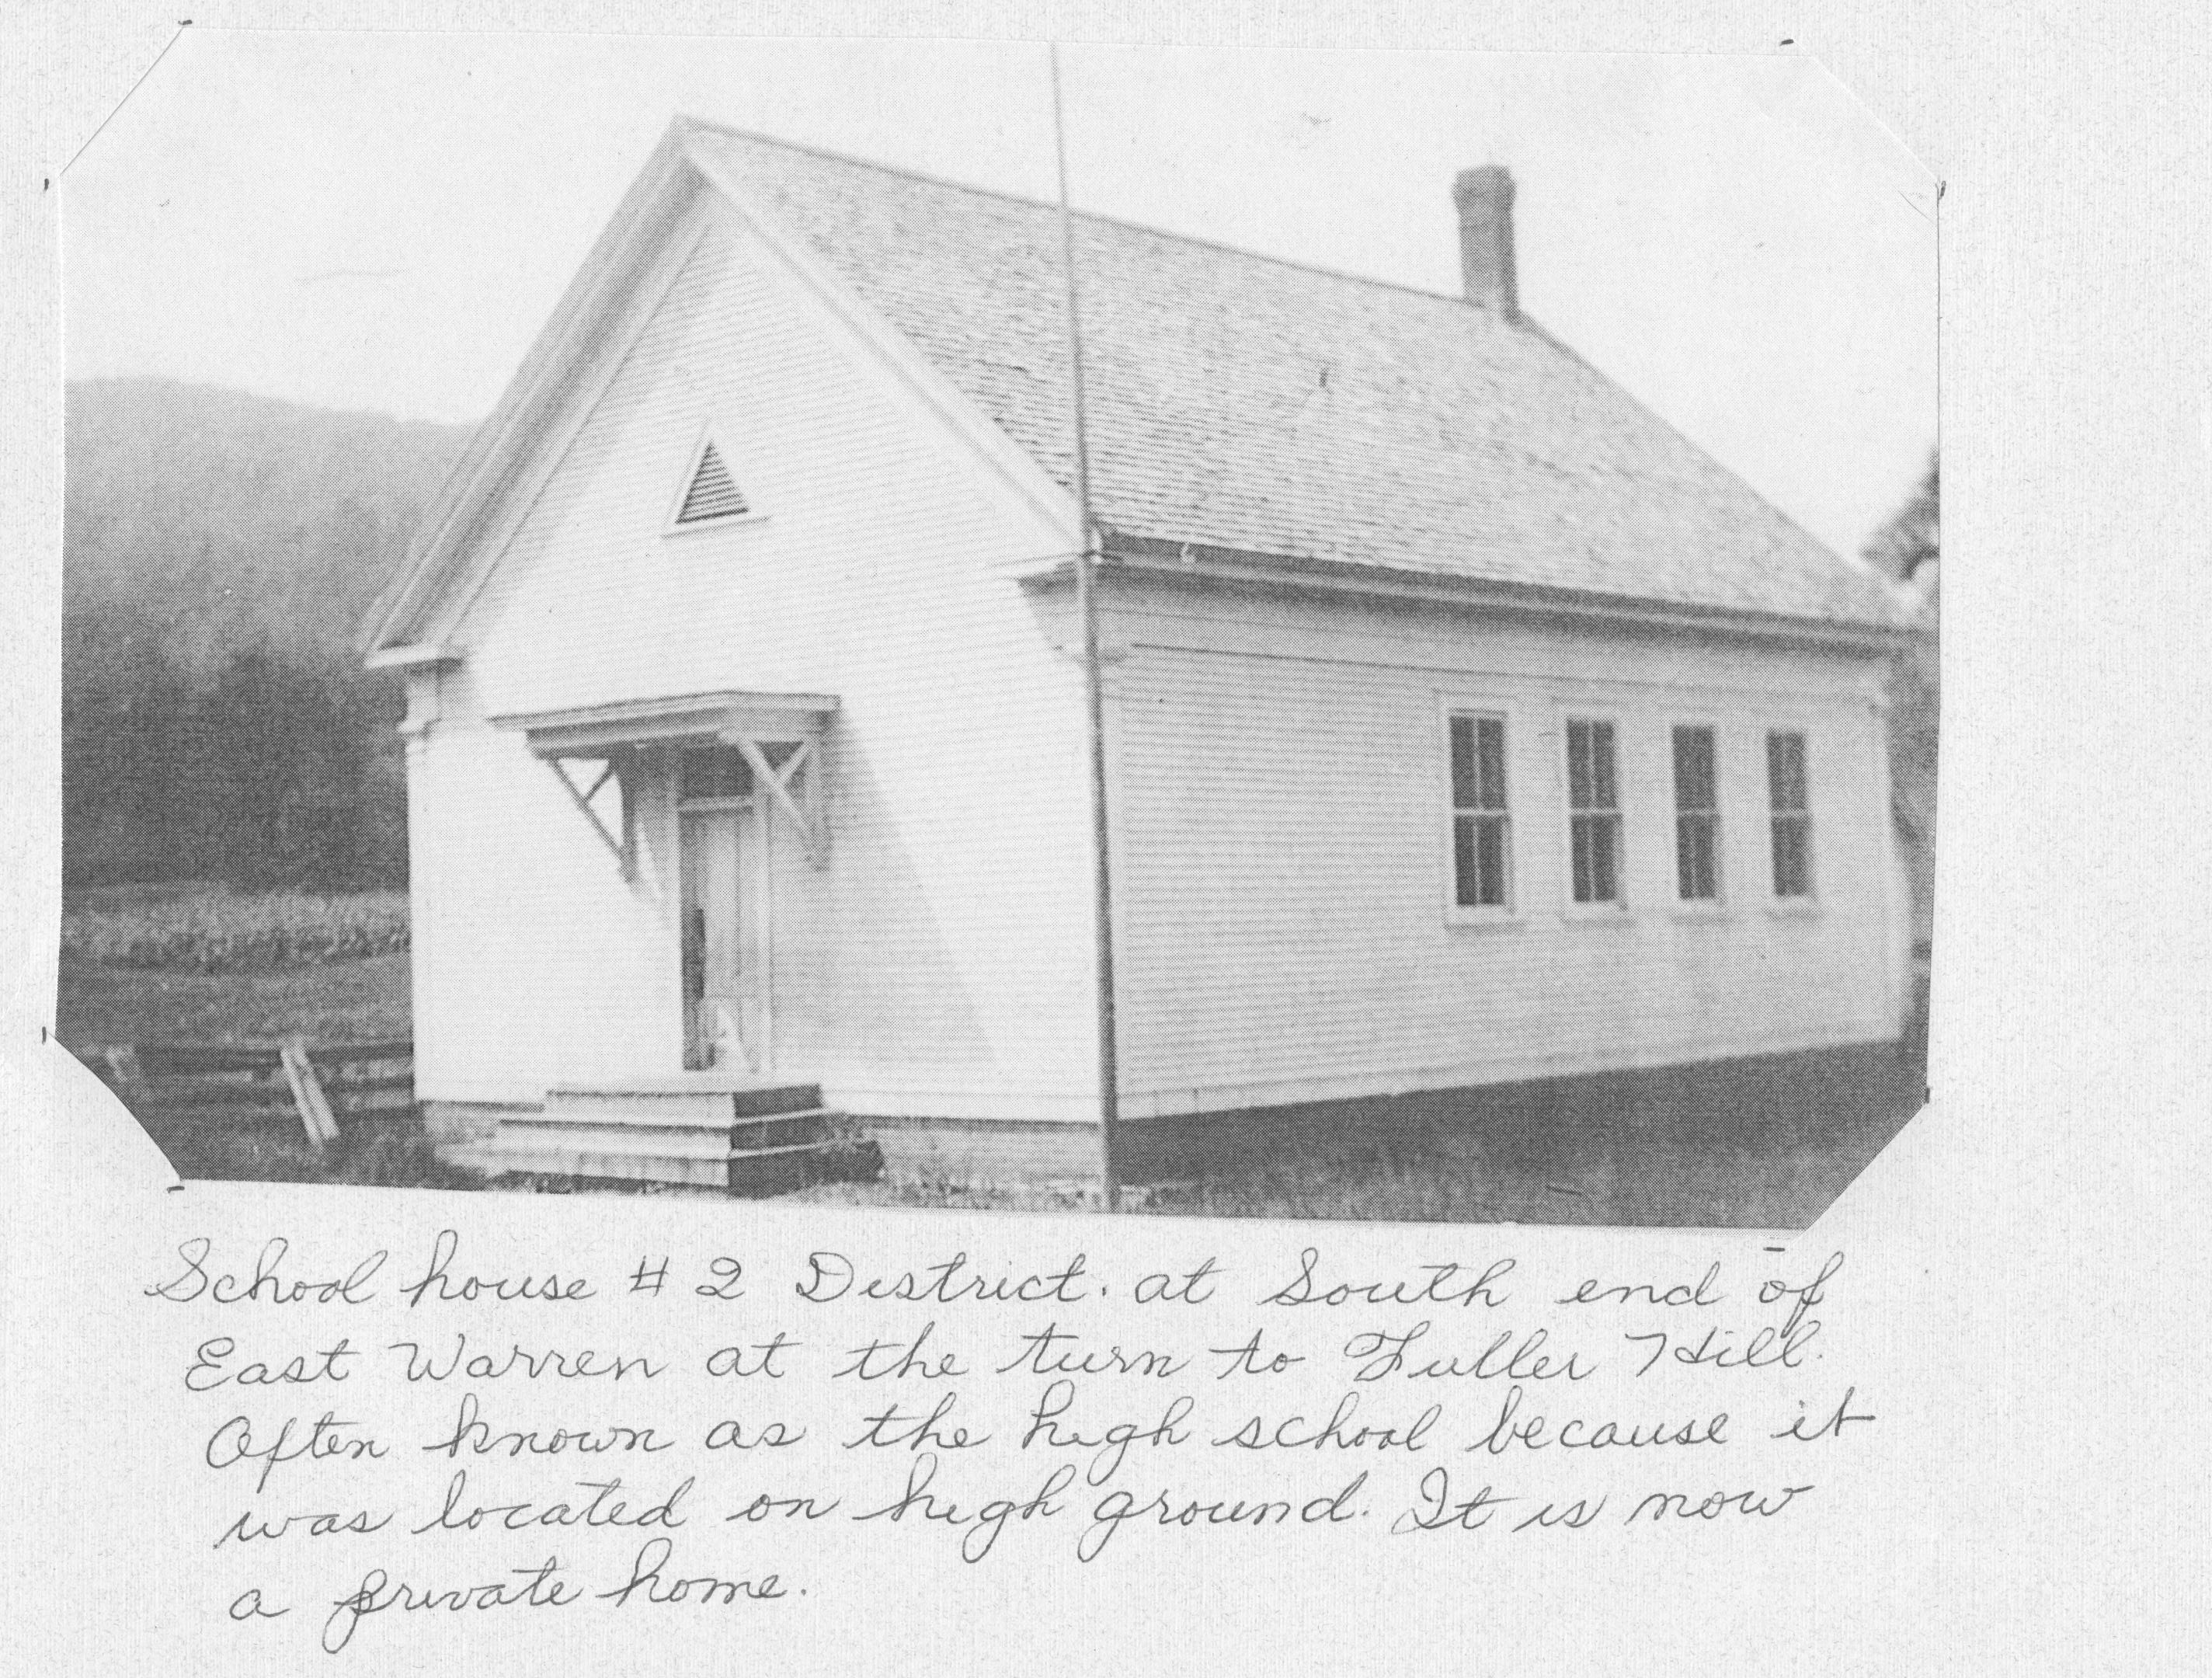 School house # 2 District. at South end of
East Warren at the turn to Fuller Hill.
Often known as the high school because it
was located on high ground. It is now
a private home.